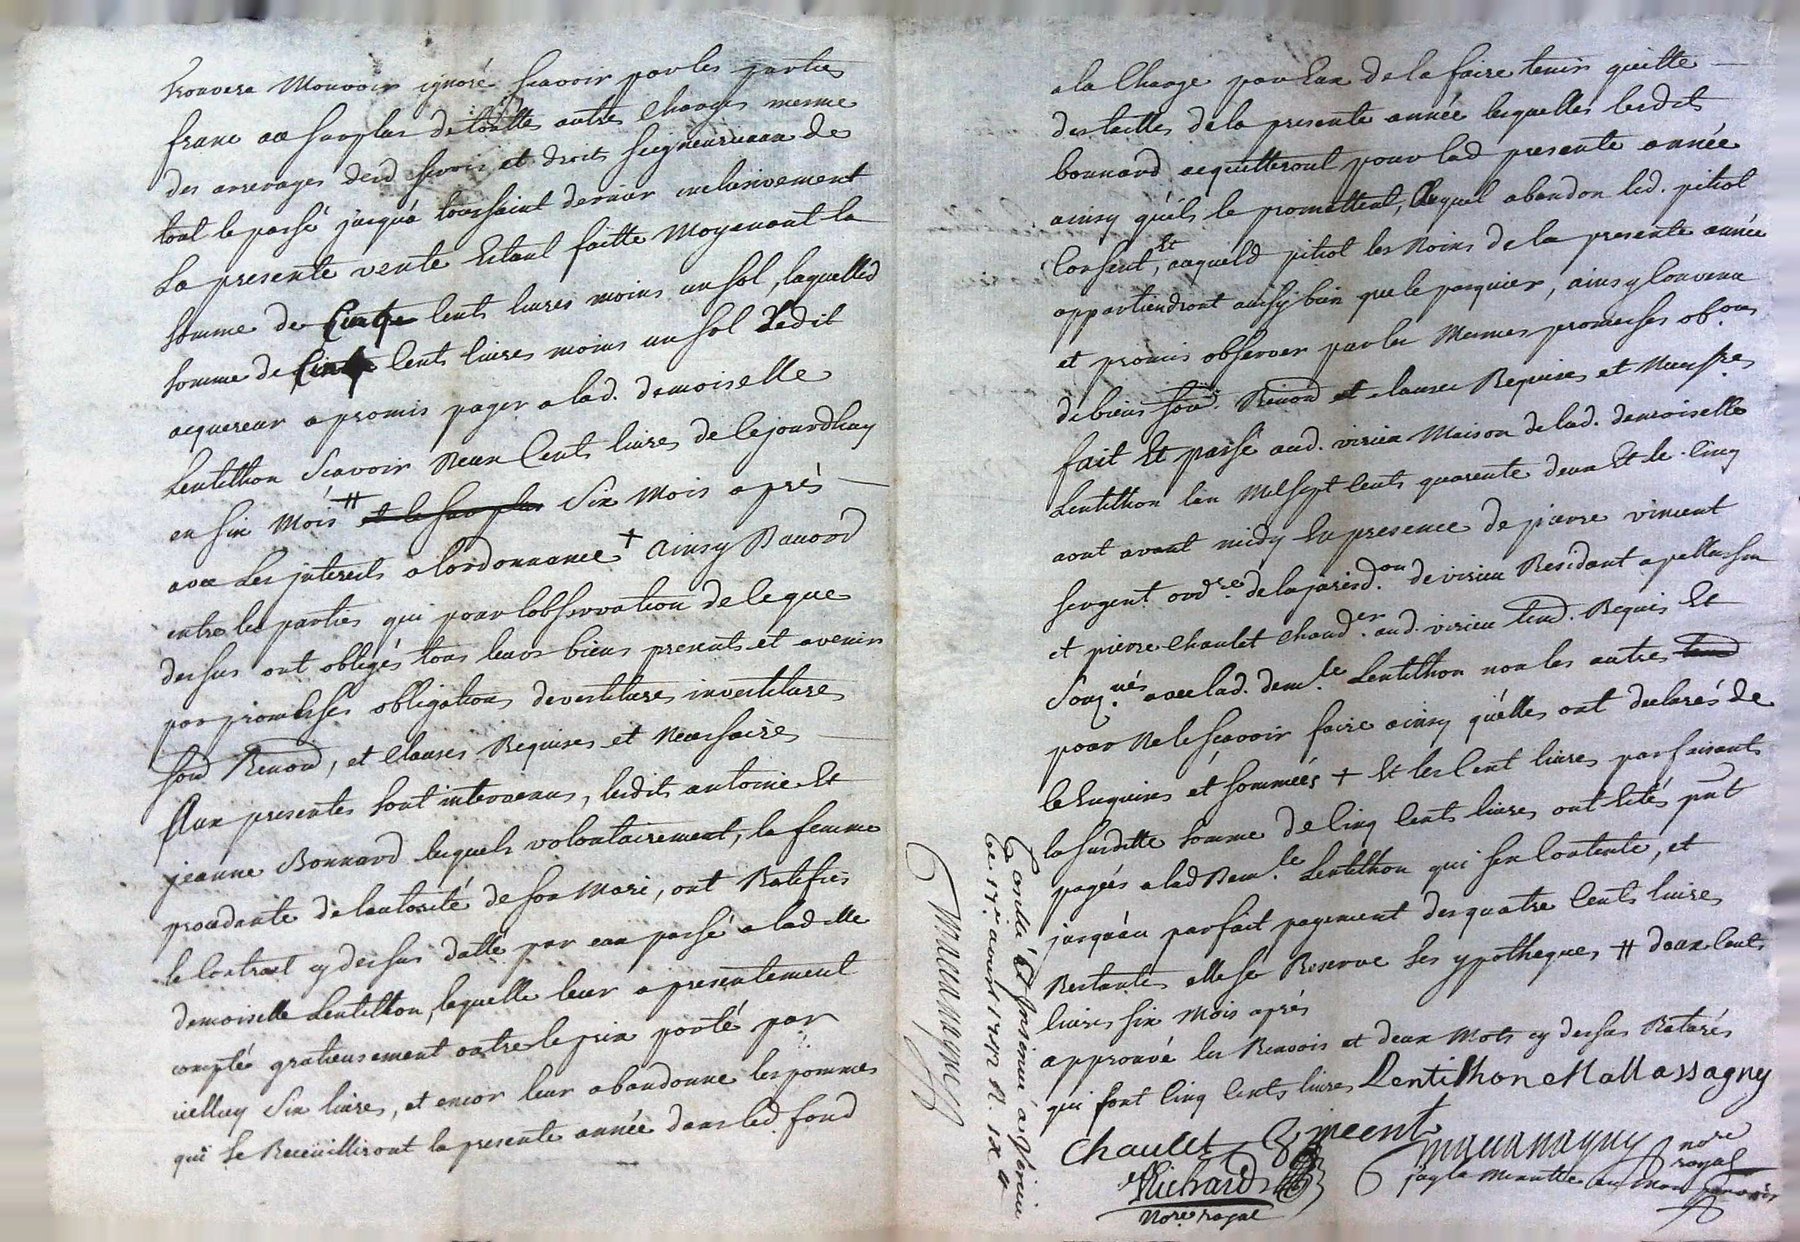 trouvera Mouvoir ignoré scavoir par les parties
franc au surplus de touttes autres charges mesme
des arrerages desd servis et droits seigneuriaux de
tout le passé jusqu'a toussaint dernier inclusivement
La presente vente Estant faitte Moyenant la
somme de Cinq cent livres moins un sol, laquelled
somme de Cinq Cent livres moins un sol Ledit
acquereur a promis payer a lad. demoiselle
Lentillon Scavoir Deux Cents livres de cejourdhuy
en six Mois # et le surplus Six Mois après
avec Les jnterests a lordonnance + ainsy Daccord
entre les parties qui pour lobservation de ce que
dessus ont obligés tous leurs biens presents et avenir
par promesses obligations devestitures investitures
soud Renond, et Clauses Requises et Necessaires
Aux presentes sont intervenus, lesdits antoine Et
jeanne Bonnard lesquels volontairement, la femme
procedante de lautorité de son Mari, ont Ratifiés
le Contract cy dessus datté par eux passé a ladelle
demoiselle Lentillon, laquelle leur a presentement
compté gratieusement outre le prix porté par
icelluy Six livres, et encor leur abandonne les pommes
qui se Recuëilliront la presente année dans led. fond
a la Charge par Eux de la faire tenir quitte
des tailles de la presente année lesquelles lesdits
bonnard acquitteront pour lad presente année
ainsy quils le promettent, lequel abandon led. pitiot
Consent, Et auquel d pitiot les Noix de la presente année
appartiendront aussy bien que le pasquier, ainsy Convenu
et promis observer par les Mesmes promesses ob.ons
de biens soud. Renond et clauses Requises et Necess.res
fait Et passé aud. virieu Maison de lad. demoiselle
Lentillon lan Mil sept cents quarente deux Et le cinq
aout avant midy En presence de pierre vincent
sergent ord.re de la jurisd.on de virieu Residant a pellussin
et pierre Chaulet Chaud.er aud. virieu tem. Requis Et
Soug.nés avec lad. dem.le Lentillon non les autres tem
pour Ne le scavoir faire ainsy qu'elles ont declarés de
ce Enquises et sommeés + Et les Cent livres parfaisants
la susditte somme de Cinq Cents livres ont Etés pnt
payeés a lad Dem.le Lentillon qui sen Contente, et
jusqu'au parfait payement des quatre Cents livres
Restantes elle se Reserve Ses ypotheques # deux Cents
livres six Mois aprés
approuvé les Renvois et deux Mots cy dessus Raturés
qui font Cinq Cents livres Lentillon Mallassagny
Chaulet Vincent
Richard
Nore royal
nore
royal
jay la Minutte
Controllé Et Insinué a Virieu
le 17.e aoust 1742 R.